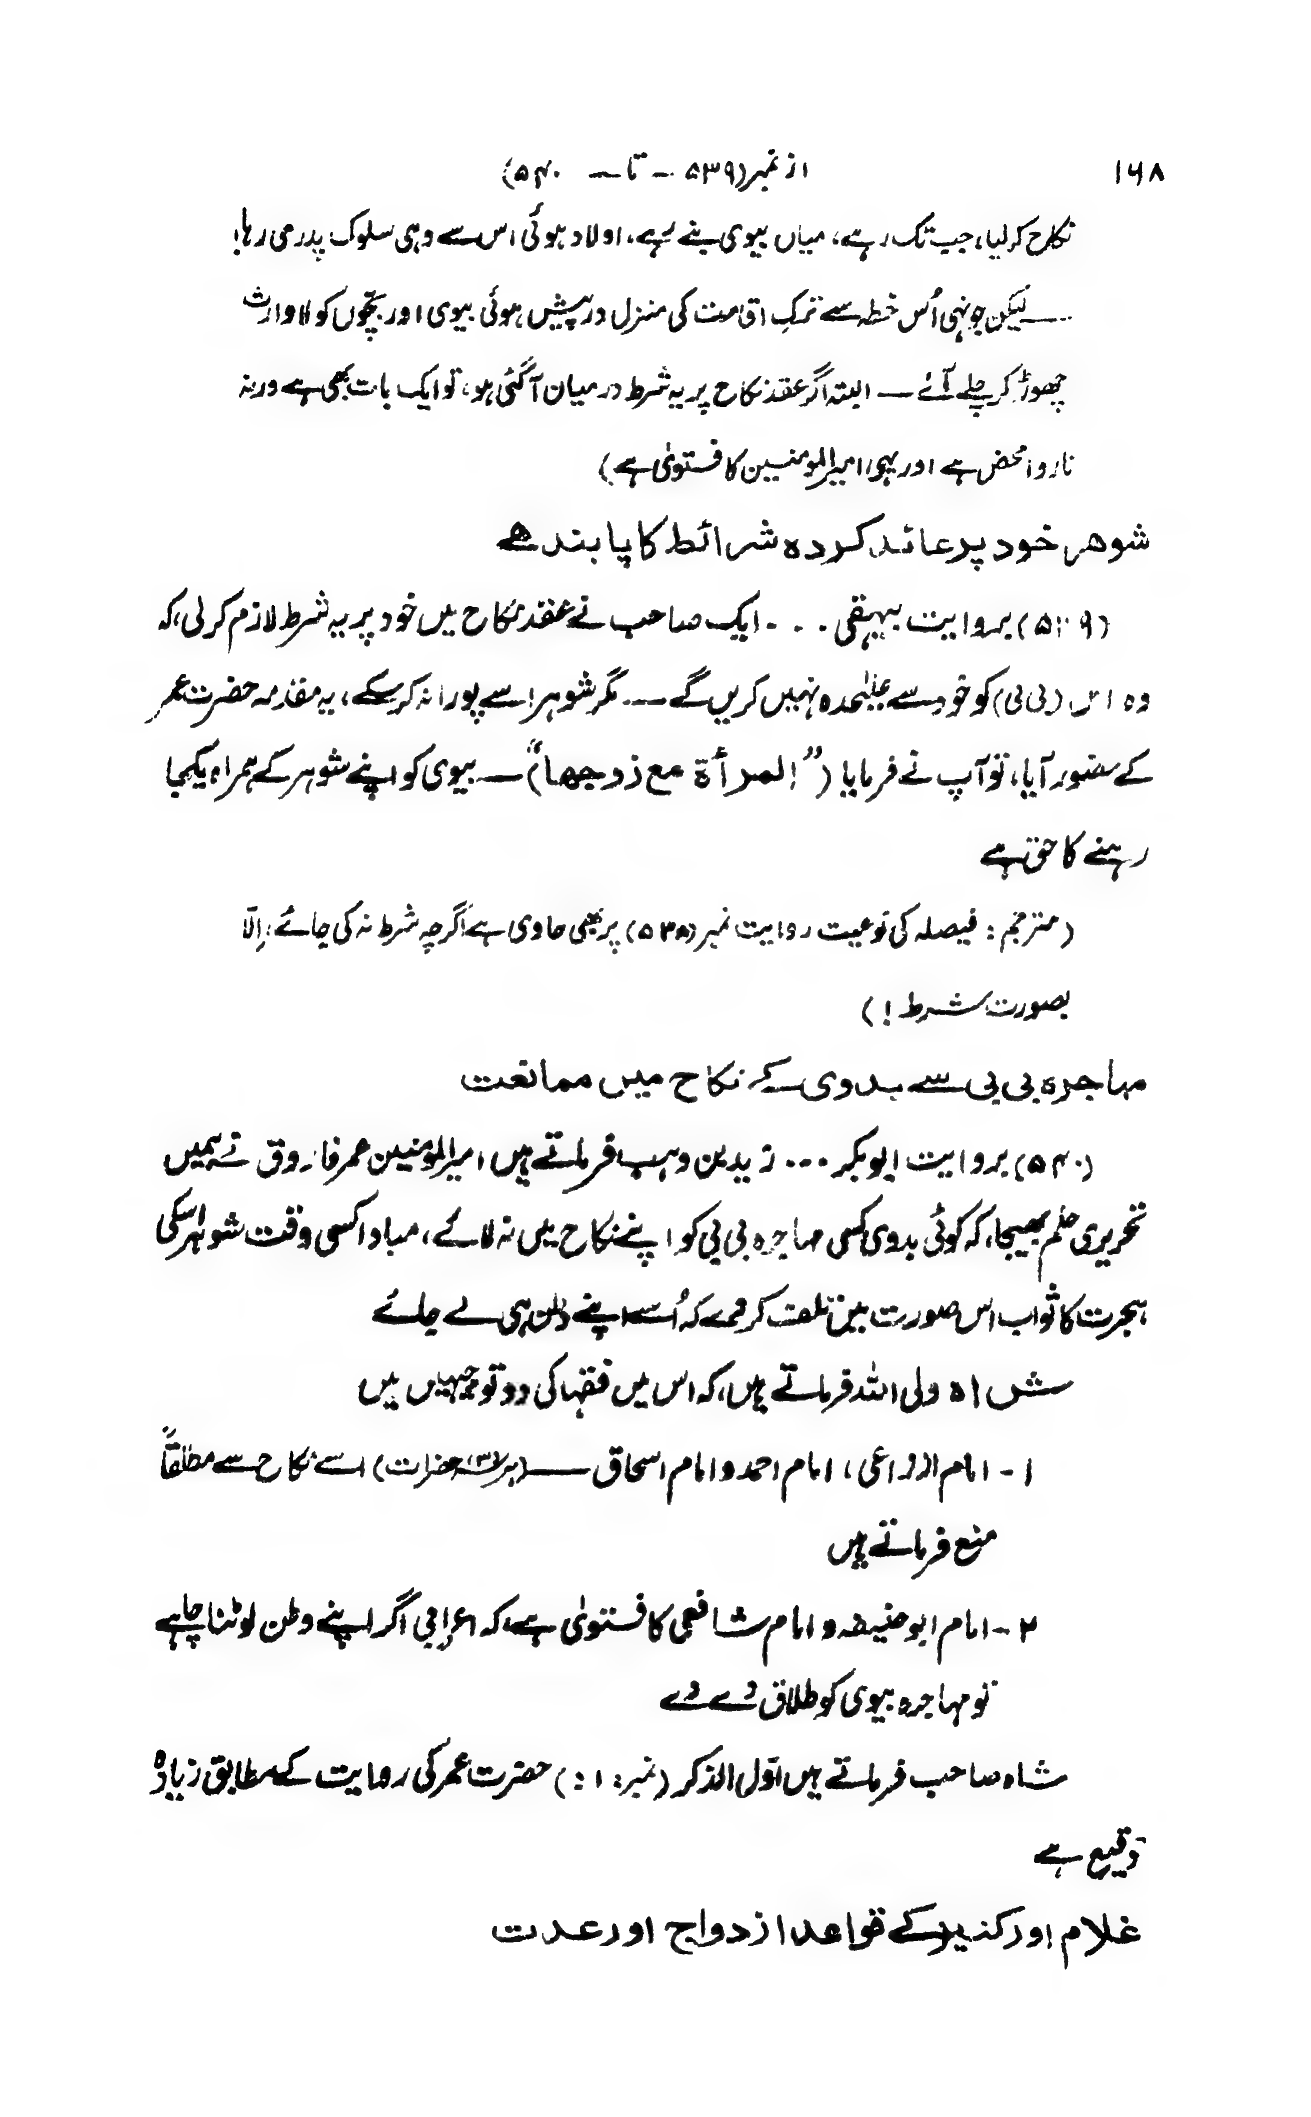 ۱۶۸ از نمبر (۵۳۹ — تا — ۵۴۰)
نکاح کر لیا، جب تک رہے، میاں بیوی بنے رہے، اولاد ہوئی اس سے وہی سلوک پدرمی رہا!
— لیکن جونہی اُس خطہ سے ترکِ اقامت کی منزل درپیش ہوئی بیوی اور بچّوں کو لاوارث
چھوڑ کر چلے آئے — البتہ اگر عقد نکاح پر یہ شرط درمیان آگئی ہو، تو ایک بات بھی ہے ورنہ
ناروا محض ہے اور یہی امیرالمومنین کا فتویٰ ہے)
شوھر خود پر عائد کردہ شرائط کا پابند ھے
(۵۳۹) بروایت بیہقی ... ایک صاحب نے عقد نکاح میں خود پر یہ شرط لازم کر لی، کہ
وہ اس (بی بی) کو خود سے علیٰحدہ نہیں کریں گے — مگر شوہر اسے پورا نہ کر سکے، یہ مقدمہ حضرت عمر
کے حضور آیا، تو آپ نے فرمایا („المرأۃ مع زوجھا“) — بیوی کو اپنے شوہر کے ہمراہ یکجا
رہنے کا حق ہے
(مترجم: فیصلہ کی نوعیت روایت نمبر (۵۳۸) پر بھی حاوی ہے اگرچہ شرط نہ کی جائے، اِلّا
بصورت شرط!)
مہاجرہ بی بی سے بدوی کے نکاح میں ممانعت
(۵۴۰) بروایت ابوبکر ... زید بن وہب فرماتے ہیں امیرالمومنین عمر فاروق نے ہمیں
تحریری حکم بھیجا، کہ کوئی بدوی کسی مہاجرہ بی بی کو اپنے نکاح میں نہ لائے، مبادا کسی وقت شوہر اسکی
ہجرت کا ثواب اس صورت میں تلف کر دے کہ اُسے اپنے وطن ہی لے جائے
شاہ ولی اللہ فرماتے ہیں، کہ اس میں فقہا کی دو توجیہیں ہیں
۱ - امام اوزاعی، امام احمد و امام اسحاق — (ہرسہ حضرات) اسے نکاح سے مطلقاً
منع فرماتے ہیں
۲ - امام ابوحنیفہ و امام شافعی کا فتویٰ ہے، کہ اعرابی اگر اپنے وطن لوٹنا چاہے
تو مہاجرہ بیوی کو طلاق دے دے
شاہ صاحب فرماتے ہیں اوّل الذکر (نمبر: ۱:) حضرت عمر کی روایت کے مطابق زیادہ
وقیع ہے
غلام اور کنیز کے قواعد ازدواج اور عدت